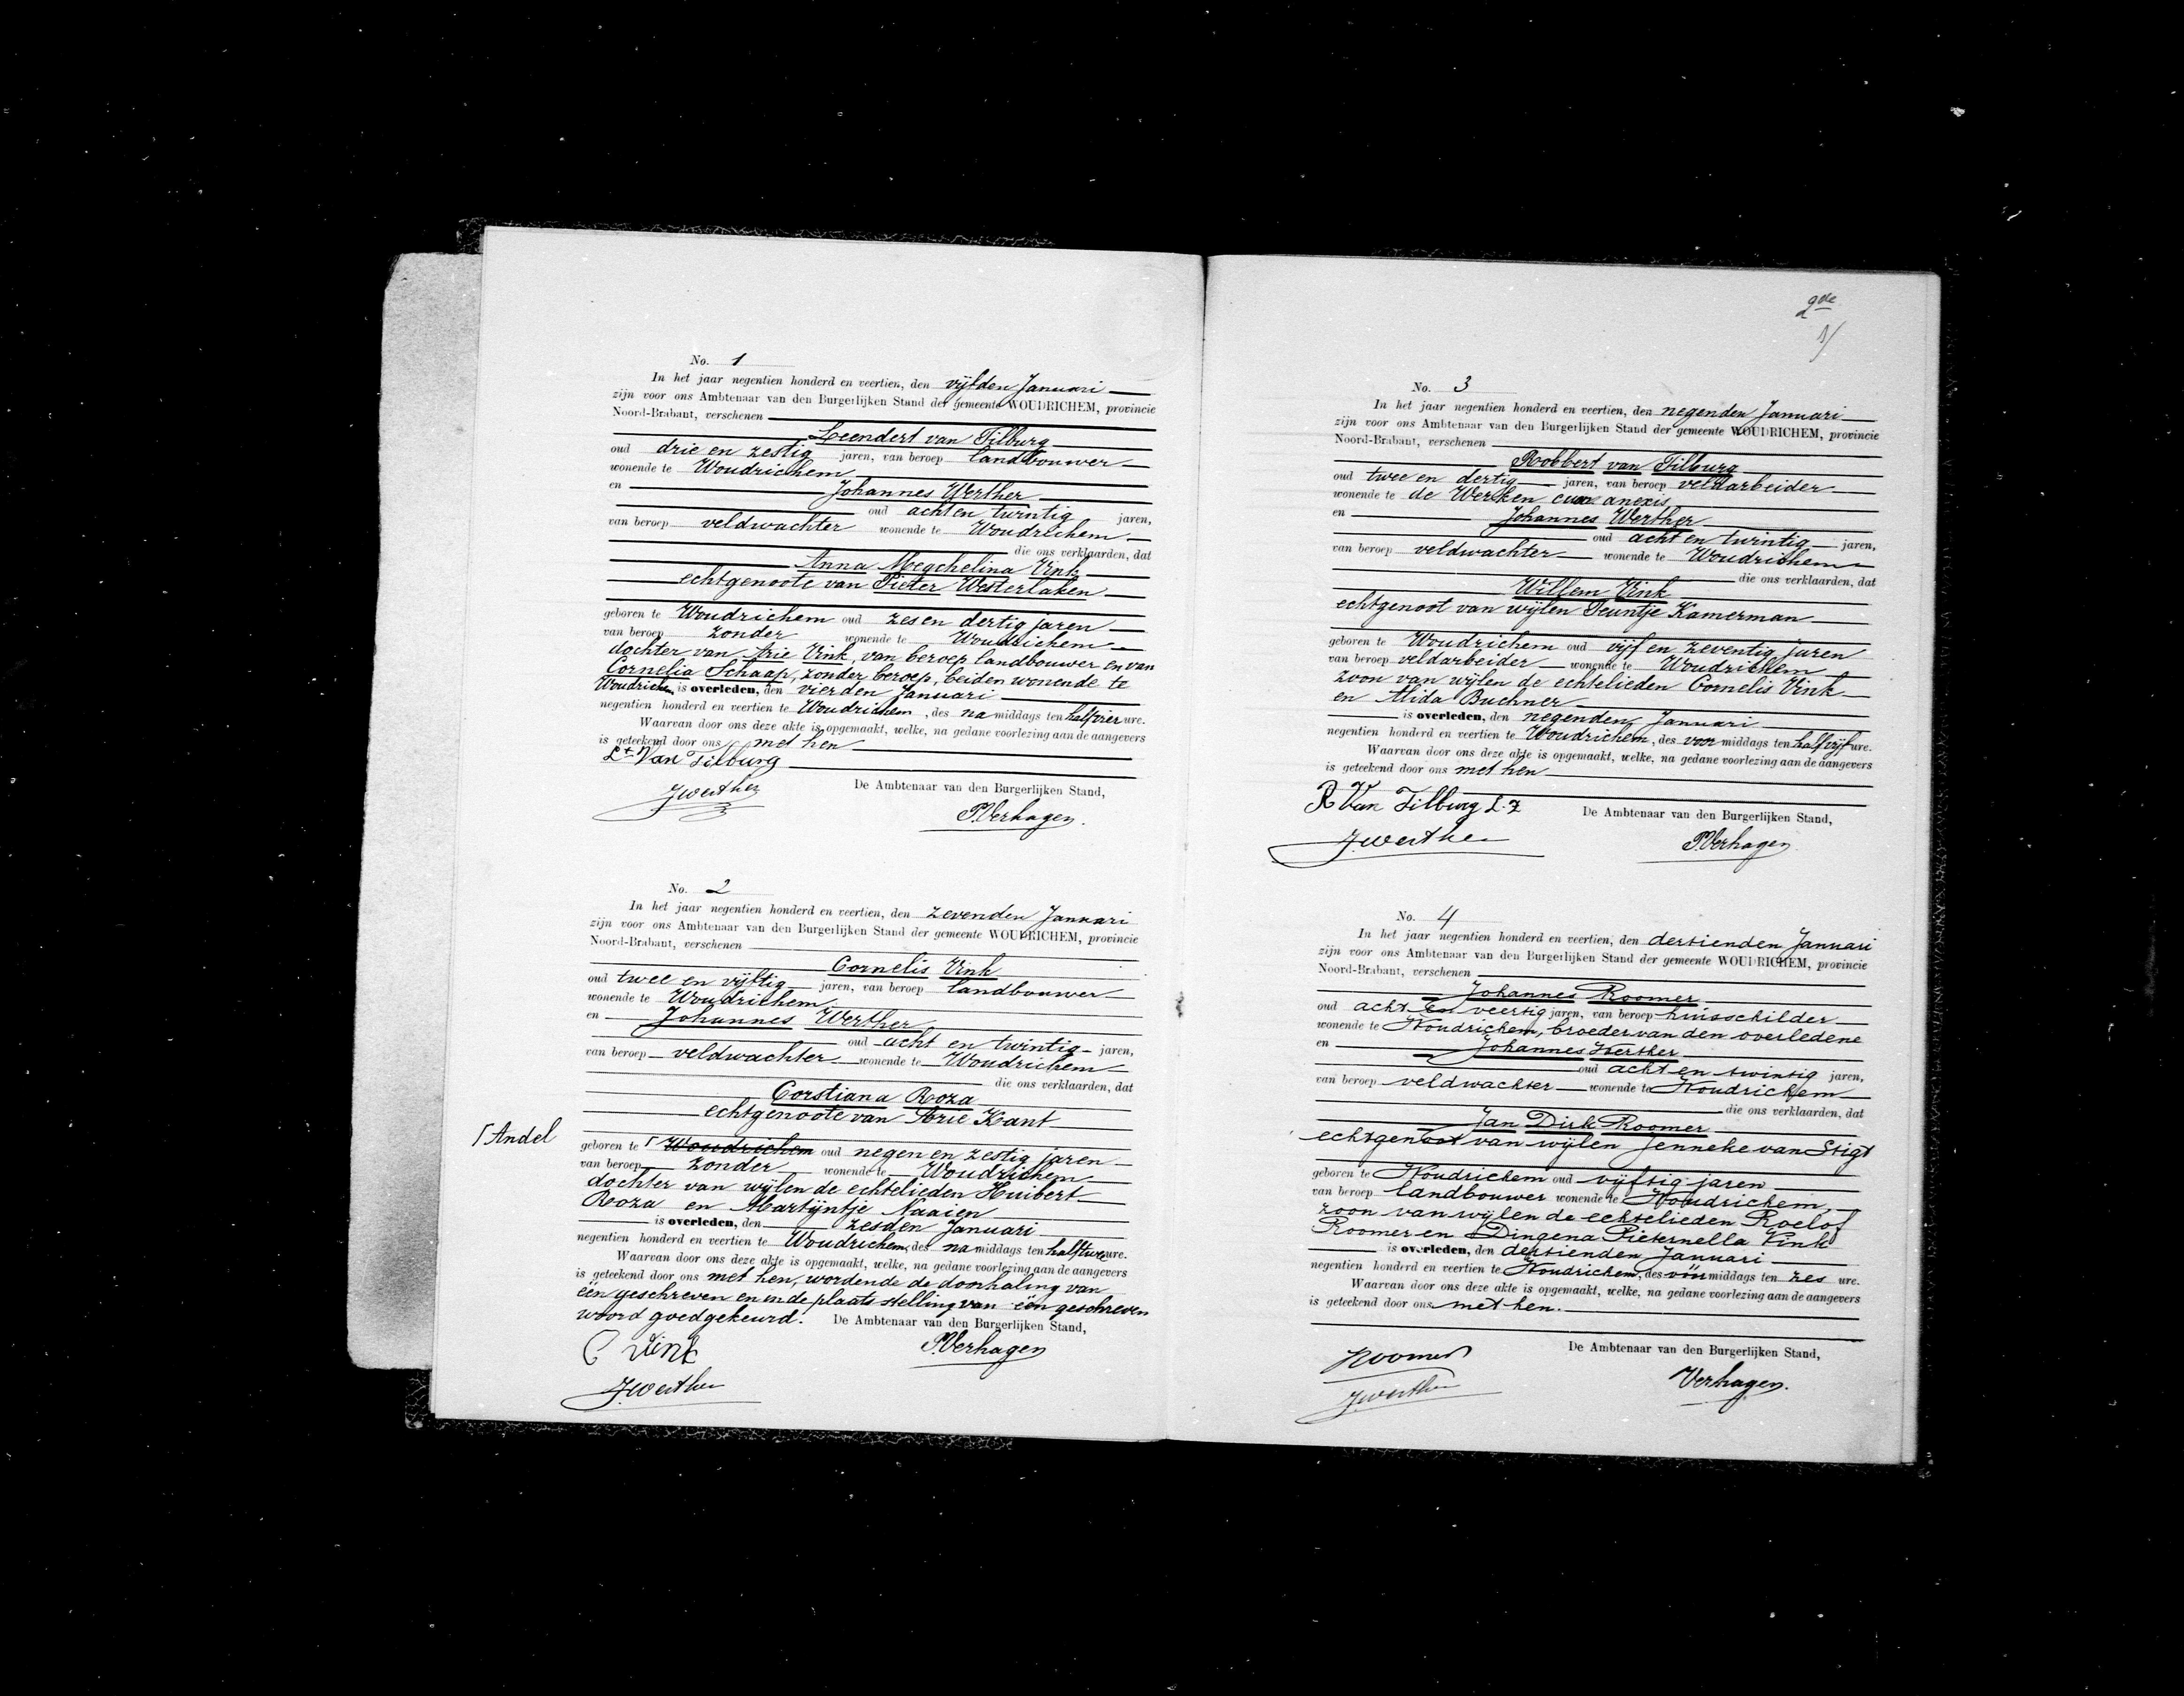 No. 1
In het jaar negentien honderd en veertien, den vijfden Januari
zijn voor ons Ambtenaar van den Burgerlijken Stand der gemeente WOUDRICHEM, provincie
Noord-Brabant, verschenen
Leendert van Tilburg
oud drie en zestig jaren, van beroep landbouwer
wonende te Woudrichem
en Johannes Werther
oud acht en twintig jaren,
van beroep veldwachter wonende te Woudrichem
die ons verklaarden, dat
Anna Megchelina Vink
echtgenoote van Pieter Westerlaken
geboren te Woudrichem oud zes en dertig jaren
van beroep zonder wonende te Woudrichem
dochter van Arie Vink, van beroep landbouwer en van
Cornelia Schaap, zonder beroep, beiden wonende te
Woudrichem is overleden, den vierden Januari
negentien honderd en veertien te Woudrichem, des na middags ten half vier ure.
Waarvan door ons deze akte is opgemaakt, welke, na gedane voorlezing aan de aangevers
is geteekend door ons met hen
Lt Van Tilburg
JWerther
De Ambtenaar van den Burgerlijken Stand,
P.Verhagen.
No. 2
In het jaar negentien honderd en veertien, den zevenden Januari
zijn voor ons Ambtenaar van den Burgerlijken Stand der gemeente WOUDRICHEM, provincie
Noord-Brabant, verschenen
Cornelis Vink
oud twee en vijftig jaren, van beroep landbouwer
wonende te Woudrichem
en Johannes Werther
oud acht en twintig jaren,
van beroep veldwachter wonende te Woudrichem
die ons verklaarden, dat
Corstiana Roza
echtgenoote van Arie Kant
Γ Andel
geboren te Γ Woudrichem oud negen en zestig jaren
van beroep zonder wonende te Woudrichem
dochter van wijlen de echtelieden Huibert
Roza en Martijntje Naaien
is overleden, den zesden Januari
negentien honderd en veertien te Woudrichem, des na middags ten half twee ure.
Waarvan door ons deze akte is opgemaakt, welke, na gedane voorlezing aan de aangevers
is geteekend door ons met hen, wordende de doorhaling van
één geschreven en in de plaats stelling van één geschreven
woord goedgekeurd. De Ambtenaar van den Burgerlijken Stand,
C Vink
P.Verhagen
J.Werther
2de
1/
No. 3
In het jaar negentien honderd en veertien, den negenden Januari
zijn voor ons Ambtenaar van den Burgerlijken Stand der gemeente WOUDRICHEM, provincie
Noord-Brabant, verschenen
Robbert van Tilburg
oud twee en dertig jaren, van beroep veldarbeider
wonende te de Werken cum anexis
en Johannes Werther
oud acht en twintig jaren,
van beroep veldwachter wonende te Woudrichem
die ons verklaarden, dat
Willem Vink
echtgenoot van wijlen Teuntje Kamerman
geboren te Woudrichem oud vijf en zeventig jaren
van beroep veldarbeider wonende te Woudrichem
zoon van wijlen de echtelieden Cornelis Vink
en Alida Buchner
is overleden, den negenden Januari
negentien honderd en veertien te Woudrichem, des voor middags ten half vijf ure.
Waarvan door ons deze akte is opgemaakt, welke, na gedane voorlezing aan de aangevers
is geteekend door ons met hen
R Van Tilburg L.Z
De Ambtenaar van den Burgerlijken Stand,
J.Werther
P.Verhagen
No. 4
In het jaar negentien honderd en veertien, den dertienden Januari
zijn voor ons Ambtenaar van den Burgerlijken Stand der gemeente WOUDRICHEM, provincie
Noord-Brabant, verschenen
Johannes Roomer
oud acht en veertig jaren, van beroep huisschilder
wonende te Woudrichem, broeder van den overledene
en Johannes Werther
oud acht en twintig jaren,
van beroep veldwachter wonende te Woudrichem
die ons verklaarden, dat
Jan Dirk Roomer
echtgenoot van wijlen Jenneke van Stigt
geboren te Woudrichem oud vijftig jaren
van beroep landbouwer wonende te Woudrichem,
zoon van wijlen de echtelieden Roelof
Roomer en Dingena Pieternella Vink
is overleden, den dertienden Januari
negentien honderd en veertien te Woudrichem, des vóór middags ten zes ure.
Waarvan door ons deze akte is opgemaakt, welke, na gedane voorlezing aan de aangevers
is geteekend door ons met hen.
De Ambtenaar van den Burgerlijken Stand,
Roomer
Verhagen.
J.Werther